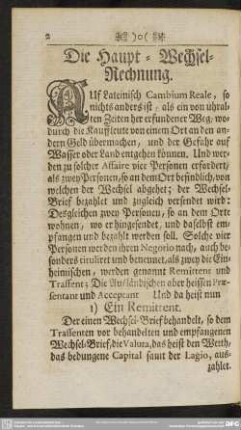 2 )o(
Die Haupt-Wechsel-
Rechnung.
AUf Lateinisch Cambium Reale, so
nichts anders ist, als ein von uhral-
ten Zeiten her erfundener Weg, wo-
durch die Kauffleute von einem Ort an den an-
dern Geld übermachen, und der Gefahr auf
Wasser oder Land entgehen können. Und wer-
den zu solcher Affaire vier Personen erfordert,
als zwey Personen, so an dem Ort befindlich, von
welchen der Wechsel abgehet; der Wechsel-
Brief bezahlt und zugleich versendet wird:
Desgleichen zwey Personen, so an dem Orte
wohnen, wo er hingesendet, und daselbst em-
pfangen und bezahlt werden soll. Solche vier
Personen werden ihren Negotio nach, auch be-
sonders tituliret und benennet, als zwey die Ein-
heimischen, werden genannt Remittent und
Trassent; Die Ausländischen aber heissen Præ-
sentant und Acceptant Und da heist nun
1) Ein Remittent.
Der einen Wechsel-Brief behandelt, so dem
Trassenten vor behandelten und empfangenen
Wechsel-Brief, die Valuta, das heist den Werth,
das bedungene Capital samt der Lagio, aus-
zahlet.